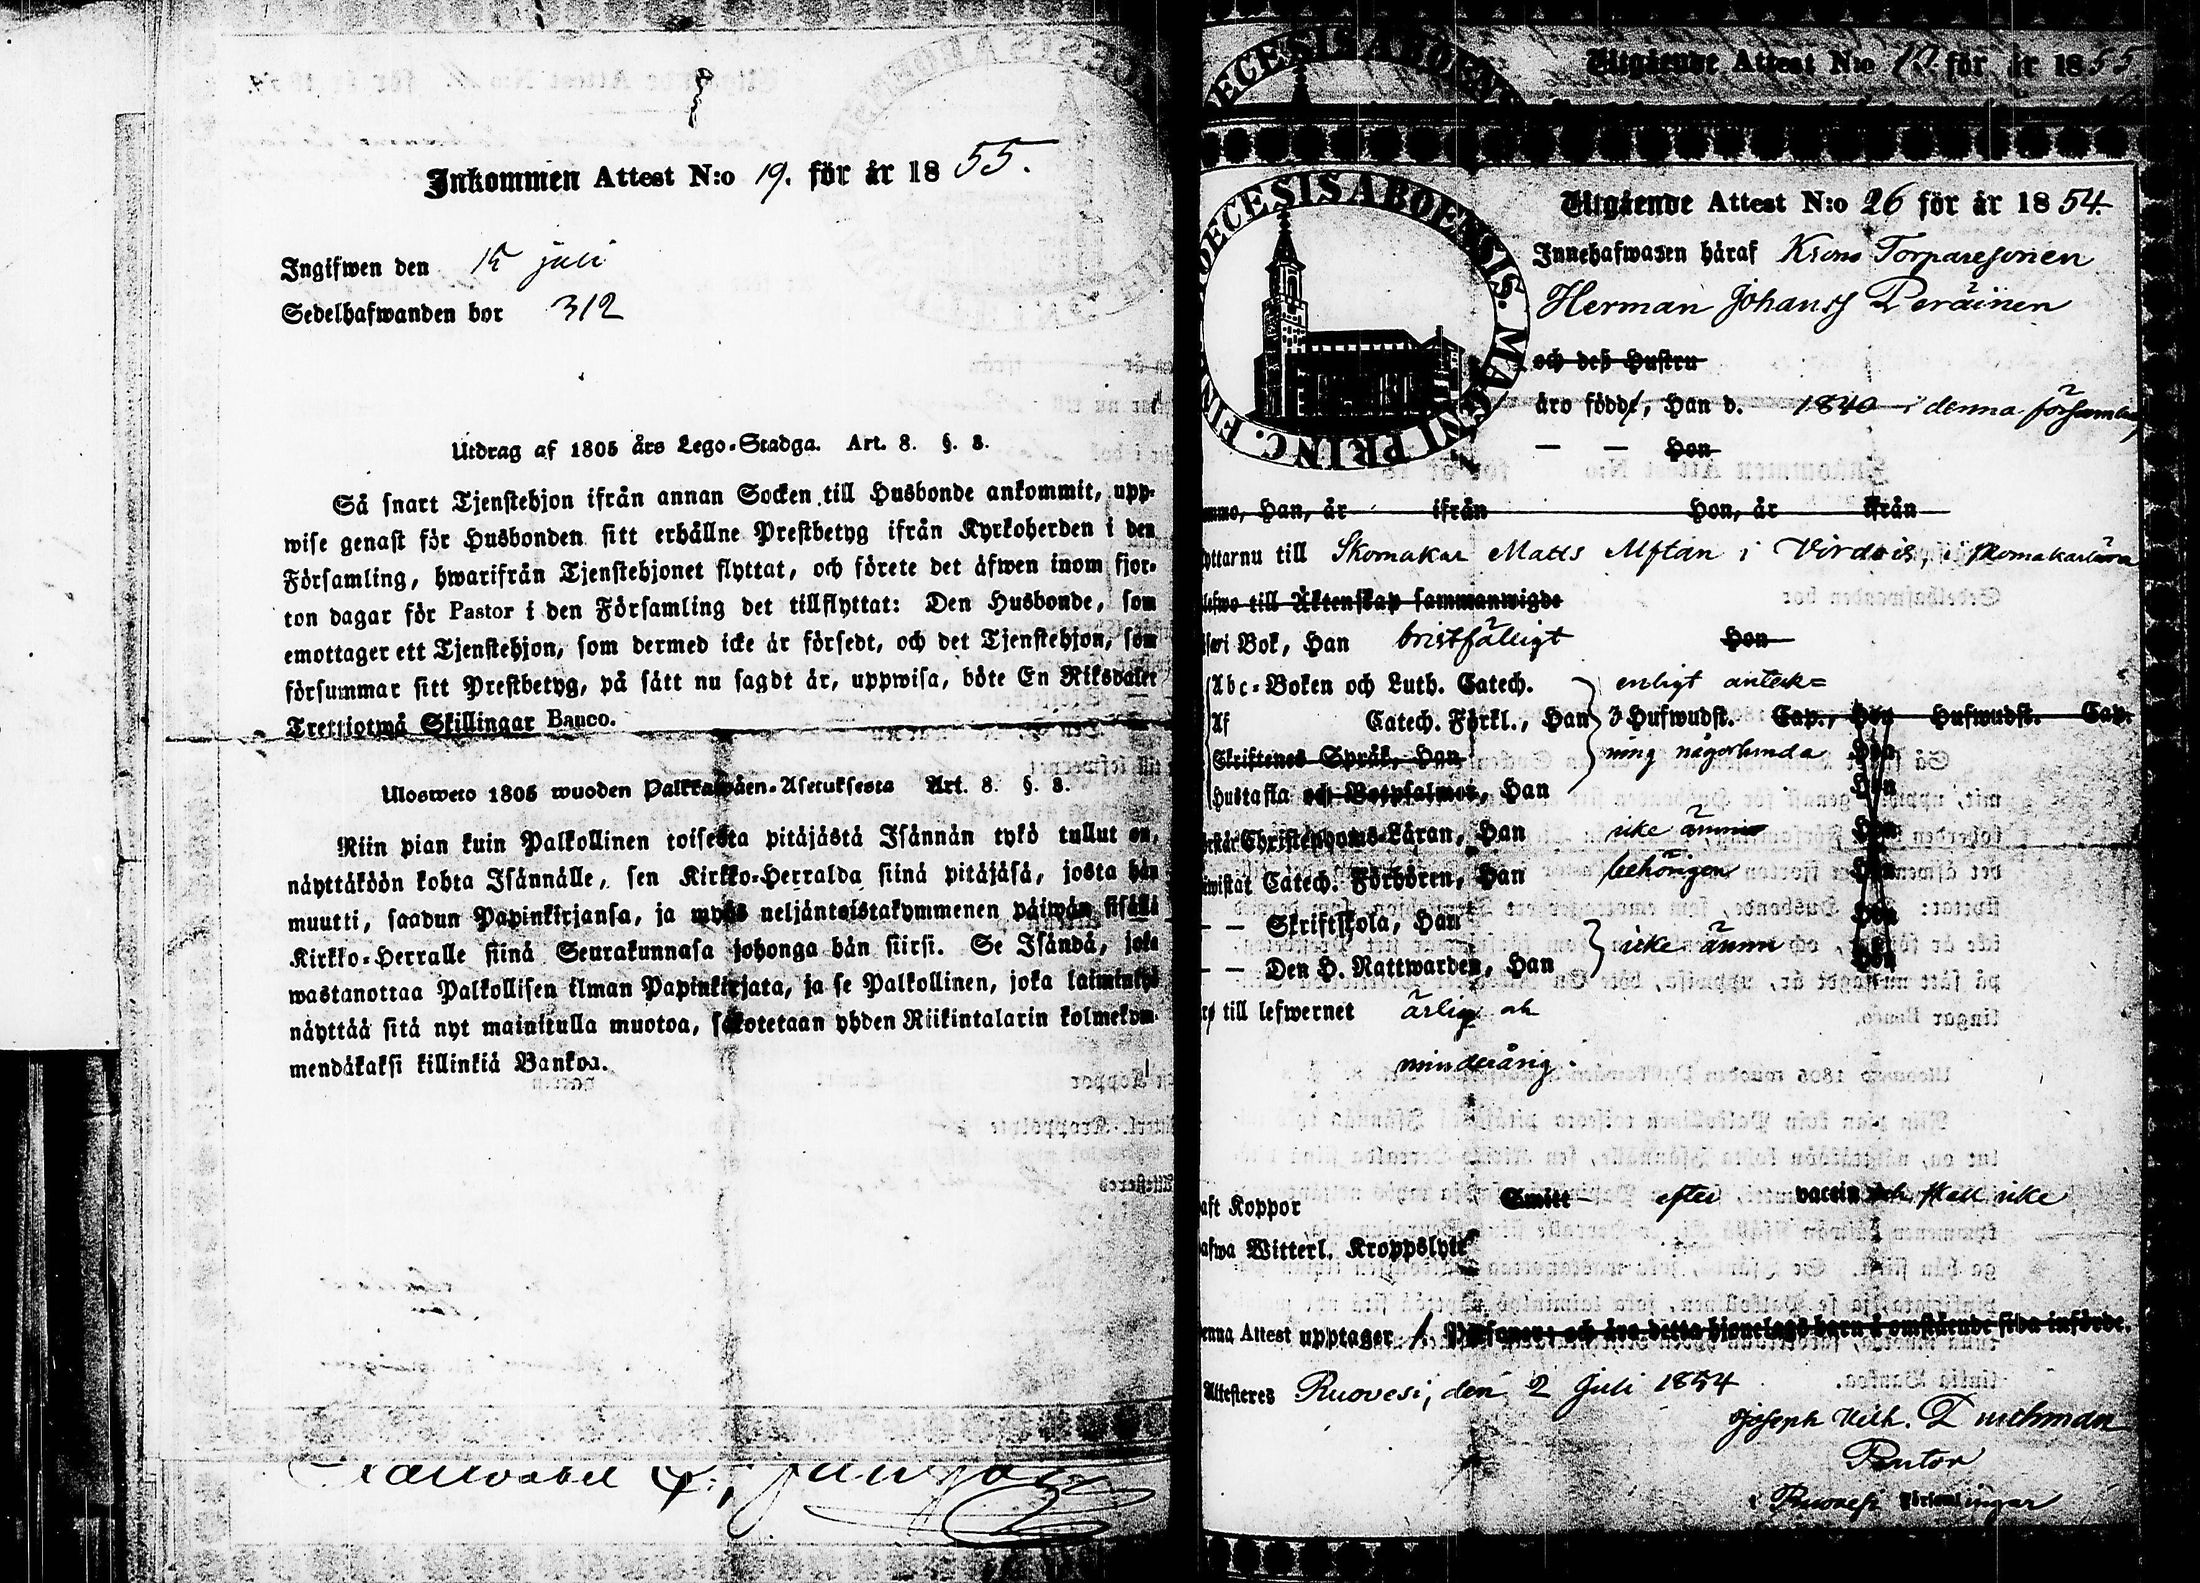 Inkommen Attest N:o 19. för år 1855.
Ingifwen den 15 juli
Sedelhafwanden bor 312
Utdrag af 1805 års Lego-Stadga. Art. 8. §. 8.
Så snart Tjenstehjon ifrån annan Socken till Husbonde ankommit, upp-
wise genast för Husbonden sitt erhållne Prestbetyg ifrån Kyrkoherden i den
Församling, hwarifrån Tjenstehjonet flyttat, och förete det äfwen inom fjor-
ton dagar för Pastor i den Församling det tillflyttat: Den Husbonde, som
emottager ett Tjenstehjon, som dermed icke är försedt, och det Tjenstehjon, som
försummar sitt Prestbetyg, på sätt nu sagdt är, uppwisa, böte En Riksdaler
Trettiotwå Skillingar Banco.
Ulosweto 1805 wuoden Palkkawäen-Asetuksesta Art. 8. §. 8.
Niin pian kuin Palkollinen toisesta pitäjästä Isännän tykö tullut on,
näyttäköön kohta Isännälle, sen Kirkko-Herralda siinä pitäjäsä, josta hän
muutti, saadun Papinkirjansa, ja myös neljäntoistakymmenen päiwän sisällä
Kirkko-Herralle siinä Seurakunnasa johonga hän siirsi. Se Isändä, joka
wastanottaa Palkollisen ilman Papinkirjata, ja se Palkollinen, joka laiminlyö
näyttää sitä nyt mainitulla muotoa, sakotetaan yhden Riikintalarin kolmekym-
mendäkaksi killinkiä Bankoa.
Utgående Attest N:o 12 för år 1855
DIOECESIS ABOENSIS. MAGNI PRINC. FIN
Utgående Attest N:o 26 för år 1854.
Innehafwaren häraf Krono Torparesonen
Herman Johanss Peräinen
och deß Hustru
äro född, Han d. 1840 i denna församling
— — Hon
Han, år ifrån Hon, år ifrån
flyttar nu till Skomakar Matts i Virdois, i skomakarlära
till Äktenskap sammanwigde
i Bok, Han bristfälligt Hon
Abc-Boken och Luth. Catech. enligt anteck=
Af Catech. Förkl., Han 3 Hufwudst. Cap., Hon Hufwudst. Cap.
Skriftenes Språk, Han ning någorlunda Hon
Hustafla och Botpsalmer, Han Hon
Christendoms-Läran, Han icke ännu Hon
Catech. Förhören, Han behörigen Hon
— — Skriftskola, Han Hon
— — Den H. Nattwarden, Han icke ännu Hon
till lefwernet ärlig och
minderårig.
haft Koppor Smitt efter vaccin och skall icke
hafwa Witterl. Kroppslyte
Denna Attest upptager 1 Personer; och äro detta hjonelags barn å omstående sida införde.
Attesteres Ruovesi, den 2 Juli 1854
Joseph Wilh. Durchman
Pastor
i Ruovesi Församlingar